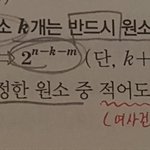 소 k개는 반드시 원소
→ 2^{n-k-m} (단, k+
정한 원소 중 적어도
(여사건